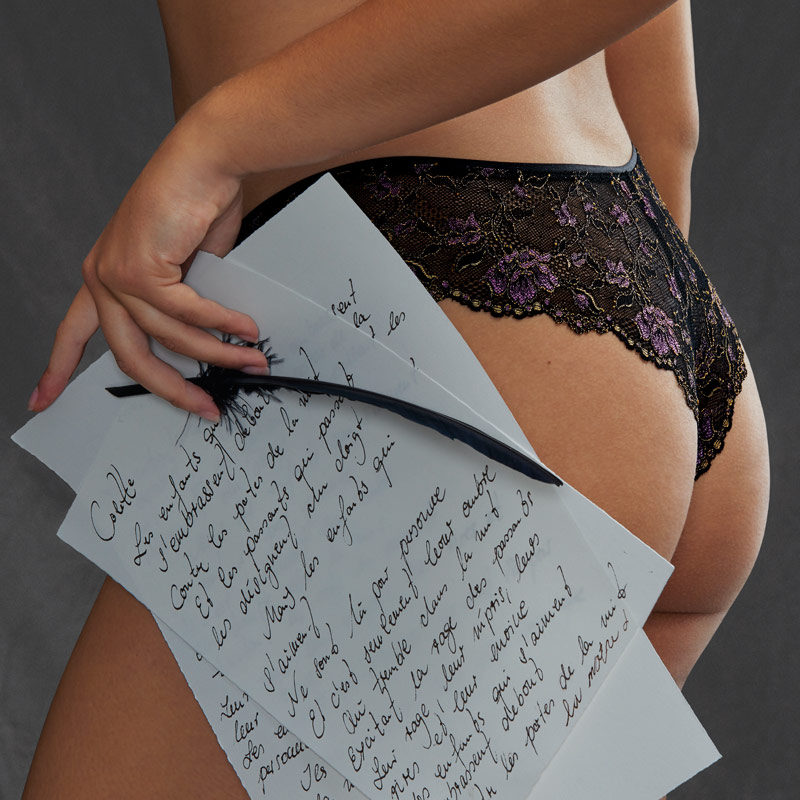 Colette
Les enfants qui
s'embrassent debout
Contre les portes de la nuit
Et les passants qui passent
les désignent du doigt
Mais les enfants qui
s'aiment
Ne sont là pour personne
Et c'est seulement leur ombre
Qui tremble dans la nuit
Excitant la rage des passants
Leur rage, leur mépris, leurs
rires et leur envie
Les enfants qui s'aiment
s'embrassent debout
les portes de la nuit
Leurs
leur
Les en
personne
ent
la
les